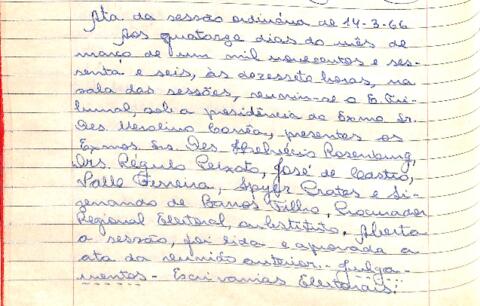 Ata da sessão ordinária de 14-3-66
Aos quatorze dias do mês de
março de um mil novecentos e ses-
senta e seis, às dezessete horas, na
sala das sessões, reuniu-se o E. Tri-
bunal, sob a presidência do Exmo Sr.
Des. Merolino Corrêa, presentes os
Exmos. Srs. Des. Helvécio Rosenburg,
Drs. Régulo Peixoto, José de Castro,
Valle Ferreira, Spyer Prates e Si-
zenando de Barros Filho, Procurador
Regional Eleitoral, substituto. Aberta
a sessão, foi lida e aprovada a
ata da reunião anterior. - Julga-
mentos - Escrivanias Eleitorais: